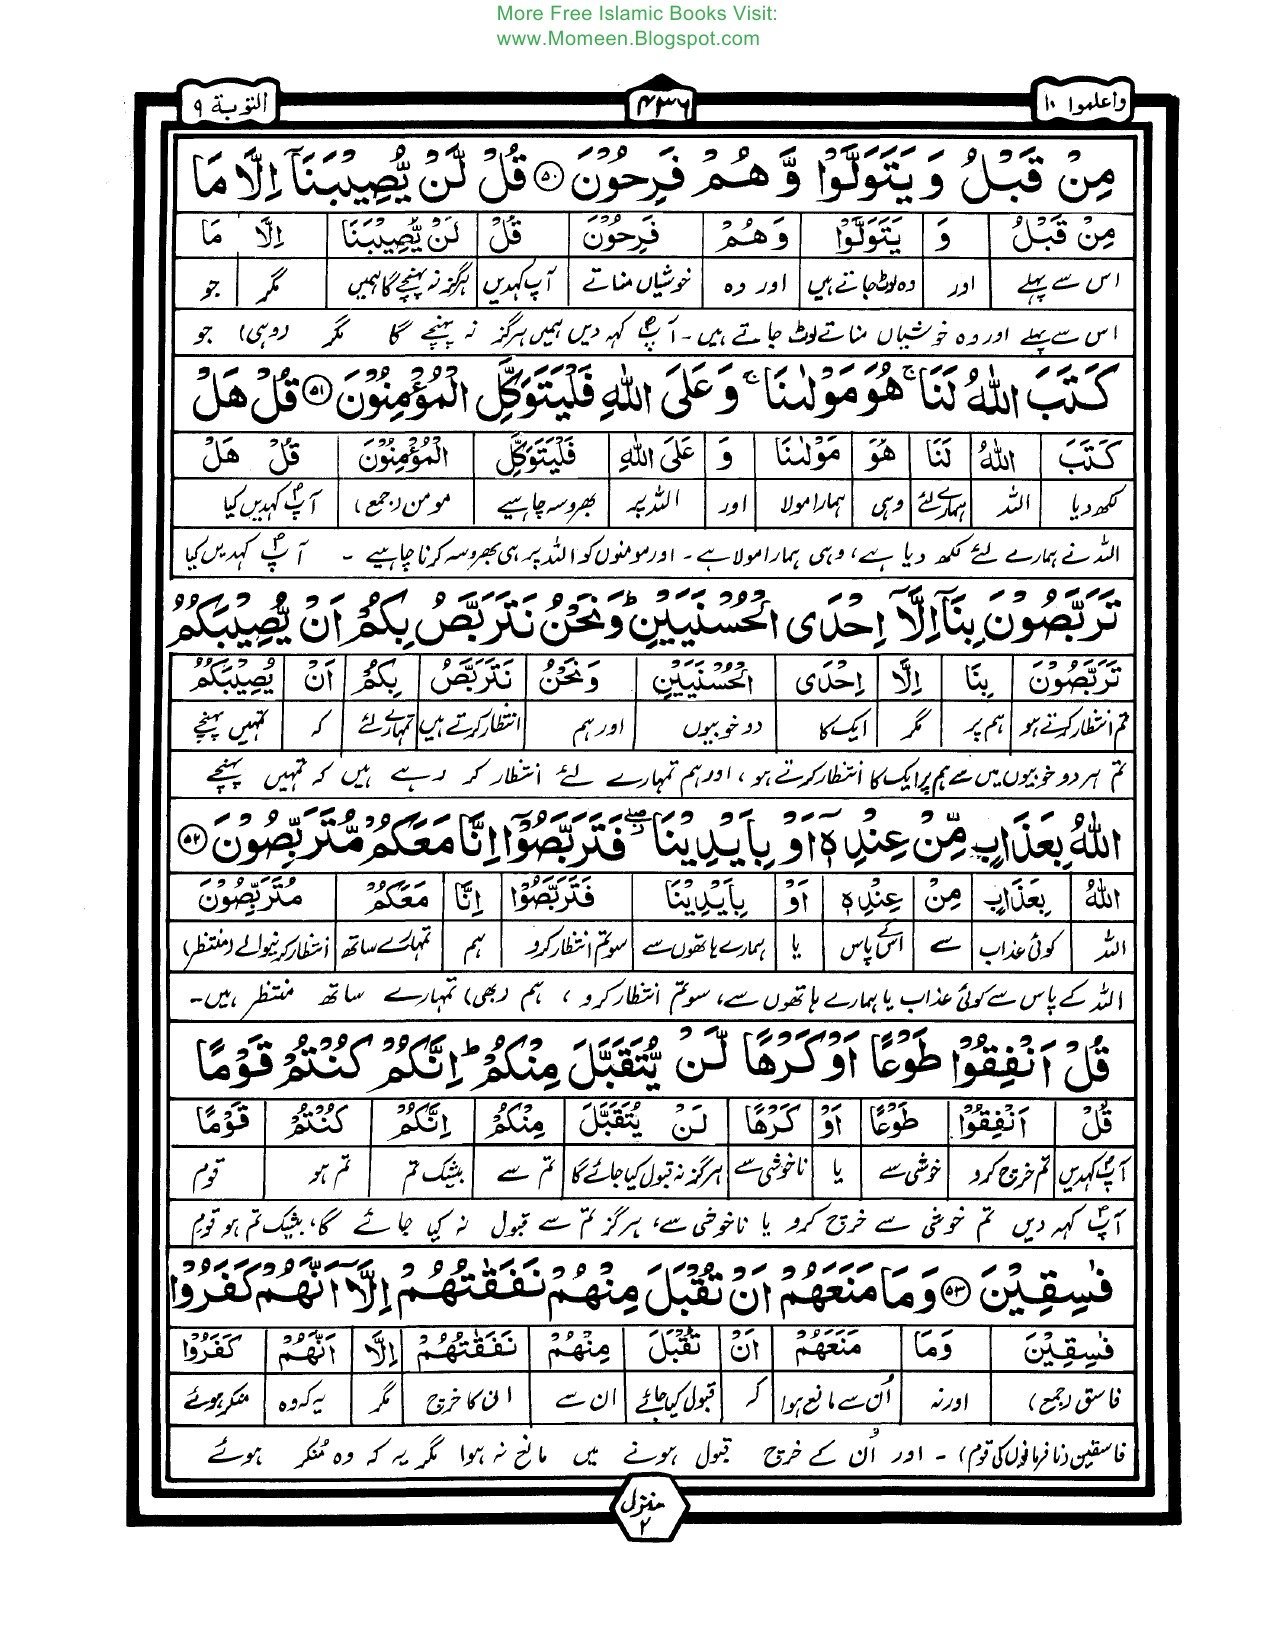 More Free Islamic Books Visit:
www.Momeen.Blogspot.com
واعلموا ١٠
۴۳۶
التوبة ٩
مِنْ قَبْلُ وَ يَتَوَلَّوْا وَّ هُمْ فَرِحُوْنَ ﴿۵۰﴾ قُلْ لَّنْ يُّصِيْبَنَاۤ اِلَّا مَا
مِنْ قَبْلُ وَ يَتَوَلَّوْا وَهُمْ فَرِحُوْنَ قُلْ لَنْ يُّصِيْبَنَا اِلَّا مَا
اس سے پہلے اور وہ لوٹ جاتے ہیں اور وہ خوشیاں مناتے آپ کہدیں ہرگز نہ پہنچے گا ہمیں مگر جو
اس سے پہلے اور وہ خوشیاں مناتے لوٹ جاتے ہیں۔ آپؐ کہہ دیں ہمیں ہرگز نہ پہنچے گا مگر (وہی) جو
كَتَبَ اللّٰهُ لَنَا ۚ هُوَ مَوْلٰىنَا ۚ وَ عَلَى اللّٰهِ فَلْيَتَوَكَّلِ الْمُؤْمِنُوْنَ ﴿۵۱﴾ قُلْ هَلْ
كَتَبَ اللّٰهُ لَنَا هُوَ مَوْلٰىنَا وَ عَلَى اللّٰهِ فَلْيَتَوَكَّلِ الْمُؤْمِنُوْنَ قُلْ هَلْ
لکھ دیا اللہ ہمارے لئے وہی ہمارا مولا اور اللہ پر بھروسہ چاہیے مومن (جمع) آپؐ کہدیں کیا
اللہ نے ہمارے لئے لکھ دیا ہے، وہی ہمارا مولا ہے۔ اور مومنوں کو اللہ پر ہی بھروسہ کرنا چاہیے ۔ آپؐ کہدیں کیا
تَرَبَّصُوْنَ بِنَاۤ اِلَّاۤ اِحْدَى الْحُسْنَيَيْنِ ؕ وَنَحْنُ نَتَرَبَّصُ بِكُمْ اَنْ يُّصِيْبَكُمُ
تَرَبَّصُوْنَ بِنَا اِلَّا اِحْدَى الْحُسْنَيَيْنِ وَنَحْنُ نَتَرَبَّصُ بِكُمْ اَنْ يُّصِيْبَكُمُ
تم انتظار کرتے ہو ہم پر مگر ایک کا دو خوبیوں اور ہم انتظار کرتے ہیں تمہارے لئے کہ تمہیں پہنچے
تم ہر دو خوبیوں میں سے ہم پر ایک کا انتظار کرتے ہو، اور ہم تمہارے لئے انتظار کر رہے ہیں کہ تمہیں پہنچے
اللّٰهُ بِعَذَابٍ مِّنْ عِنْدِهٖۤ اَوْ بِاَيْدِيْنَا ۖ فَتَرَبَّصُوْۤا اِنَّا مَعَكُمْ مُّتَرَبِّصُوْنَ ﴿۵۲﴾
اللّٰهُ بِعَذَابٍ مِنْ عِنْدِهٖ اَوْ بِاَيْدِيْنَا فَتَرَبَّصُوْا اِنَّا مَعَكُمْ مُتَرَبِّصُوْنَ
اللہ کوئی عذاب سے اس کے پاس یا ہمارے ہاتھوں سے سو تم انتظار کرو ہم تمہارے ساتھ انتظار کرنیوالے (منتظر)
اللہ کے پاس سے کوئی عذاب یا ہمارے ہاتھوں سے، سو تم انتظار کرو، ہم (بھی) تمہارے ساتھ منتظر ہیں۔
قُلْ اَنْفِقُوْا طَوْعًا اَوْ كَرْهًا لَّنْ يُّتَقَبَّلَ مِنْكُمْ ؕ اِنَّكُمْ كُنْتُمْ قَوْمًا
قُلْ اَنْفِقُوْا طَوْعًا اَوْ كَرْهًا لَنْ يُتَقَبَّلَ مِنْكُمْ اِنَّكُمْ كُنْتُمْ قَوْمًا
آپؐ کہدیں تم خرچ کرو خوشی سے یا ناخوشی سے ہرگز نہ قبول کیا جائے گا تم سے بیشک تم تم ہو قوم
آپؐ کہہ دیں تم خوشی سے خرچ کرو یا ناخوشی سے، ہرگز تم سے قبول نہ کیا جائے گا، بیشک تم ہو قوم
فٰسِقِيْنَ ﴿۵۳﴾ وَ مَا مَنَعَهُمْ اَنْ تُقْبَلَ مِنْهُمْ نَفَقٰتُهُمْ اِلَّاۤ اَنَّهُمْ كَفَرُوْا
فٰسِقِيْنَ وَمَا مَنَعَهُمْ اَنْ تُقْبَلَ مِنْهُمْ نَفَقٰتُهُمْ اِلَّا اَنَّهُمْ كَفَرُوْا
فاسق (جمع) اور نہ اُن سے مانع ہوا کہ قبول کیا جائے ان سے ان کا خرچ مگر یہ کہ وہ منکر ہوئے
فاسقین (نافرمانوں کی قوم) ۔ اور اُن کے خرچ قبول ہونے میں مانع نہ ہوا مگر یہ کہ وہ مُنکر ہوئے
منزل ۲